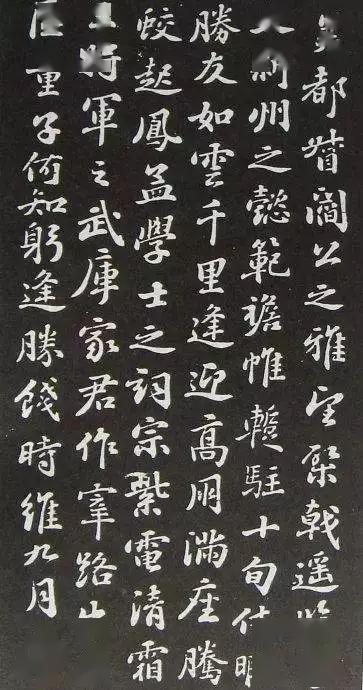 都督閻公之雅望棨戟遥
州之懿範襜帷暫駐十旬
勝友如雲千里逢迎高朋滿座騰
蛟起鳳孟學士之詞宗紫電清霜
將軍之武庫家君作宰路出
童子何知躬逢勝餞時維九月